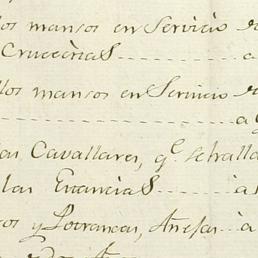 los mansos en Servicio de
Crucerias a
llos mansos en Servicio de
a
as Cavallares, q.e se hall
las Estancias a
os y Potrancas, Arrefas a